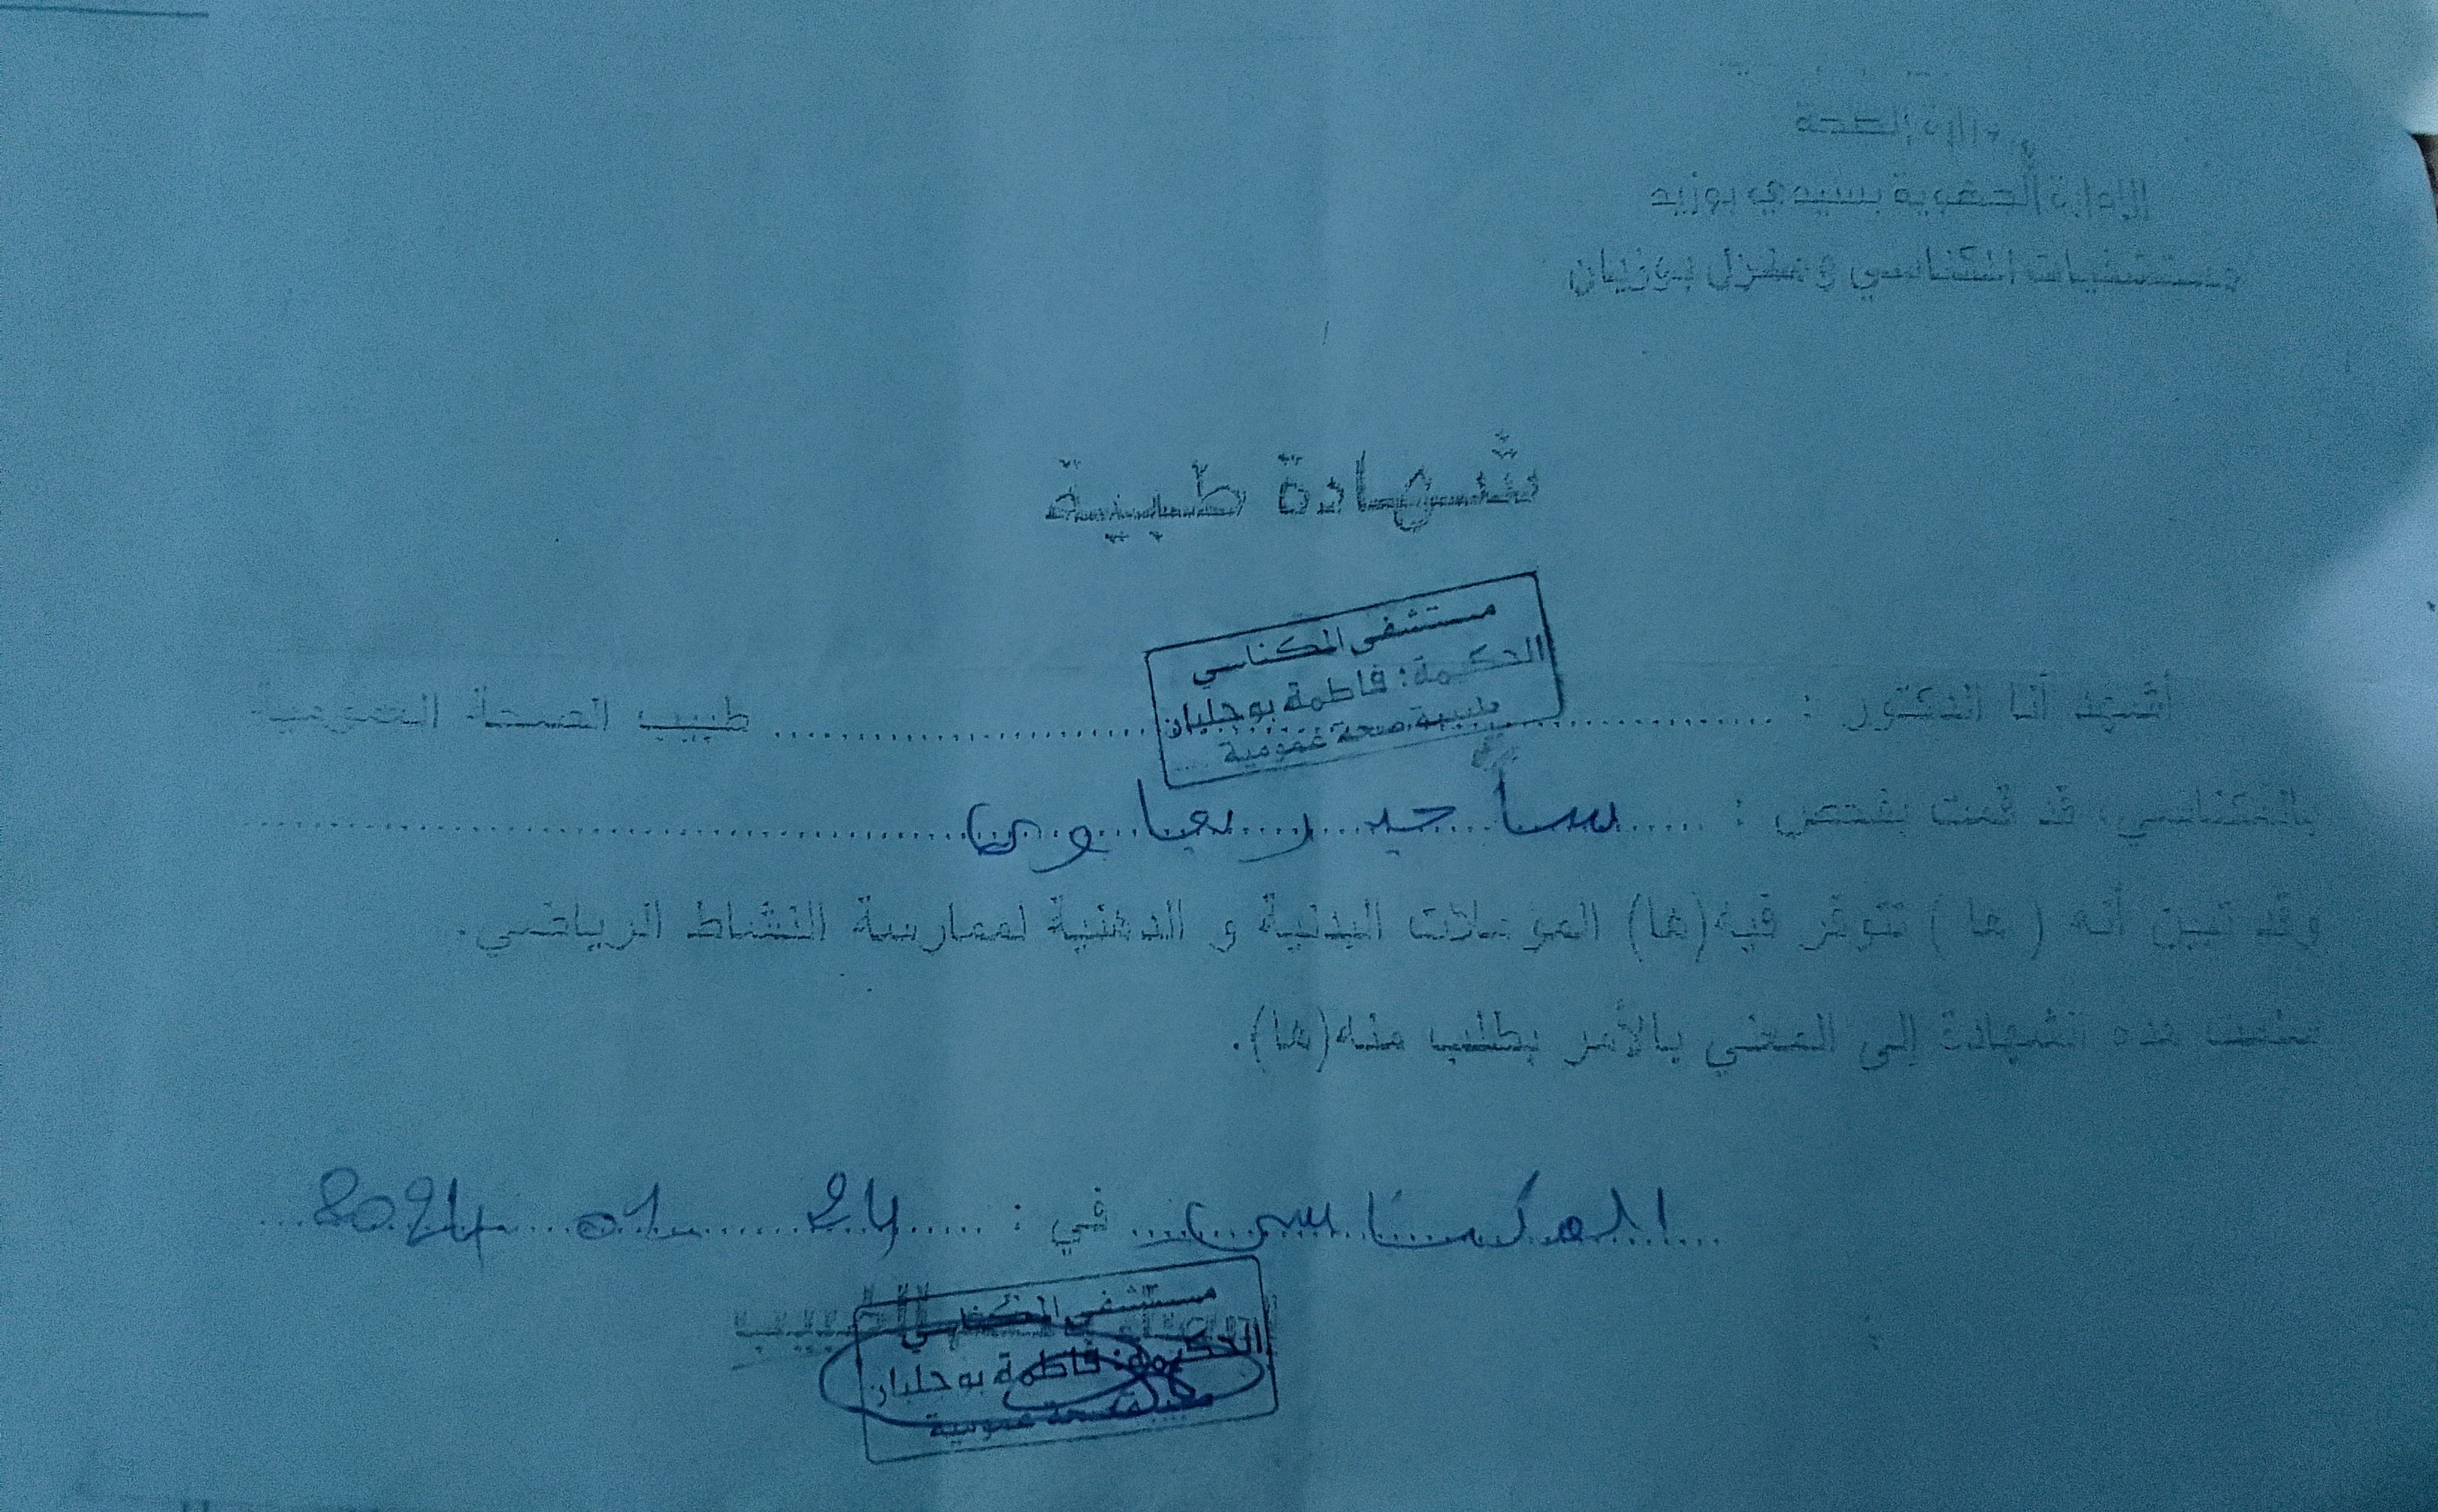 وزارة الصحة
الإدارة الجهوية بسيدي بوزيد
مستشفيات المكناسي و منزل بوزيان
شهادة طبية
مستشفى المكناسي
الحكيمة: فاطمة بوجلبان
طبيبة صحة عمومية
أشهد أنا الدكتور : طبيب الصحة العمومية
بالمكناسي، قد قمت بفحص : ساجد ربعاوي
وقد تبين أنه ( ها ) تتوفر فيه(ها) المؤهلات البدنية و الذهنية لممارسة النشاط الرياضي.
سلمت هذه الشهادة إلى المعني بالأمر بطلب منه(ها).
المكناسي في : 24 01 2024
الطبيب
مستشفى المكناسي
الحكيمة: فاطمة بوجلبان
طبيبة صحة عمومية